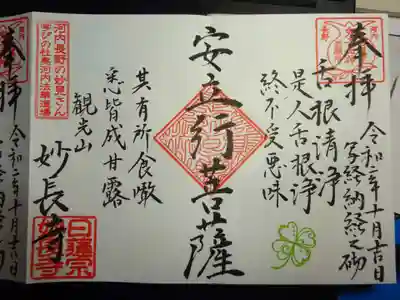 奉拝
令和二年十月吉日
写経納経之砌
舌根清浄
是人舌根浄
終不受悪味
安立行菩薩
其有所食噉
悉皆成甘露
観光山
妙長寺
河内長野の妙見さん
学びの社奥河内法華道場
日蓮宗
妙長寺
奉拝
令和二年十月吉日